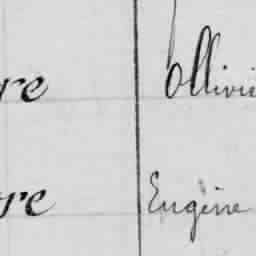 re Ollivi
re Eugène